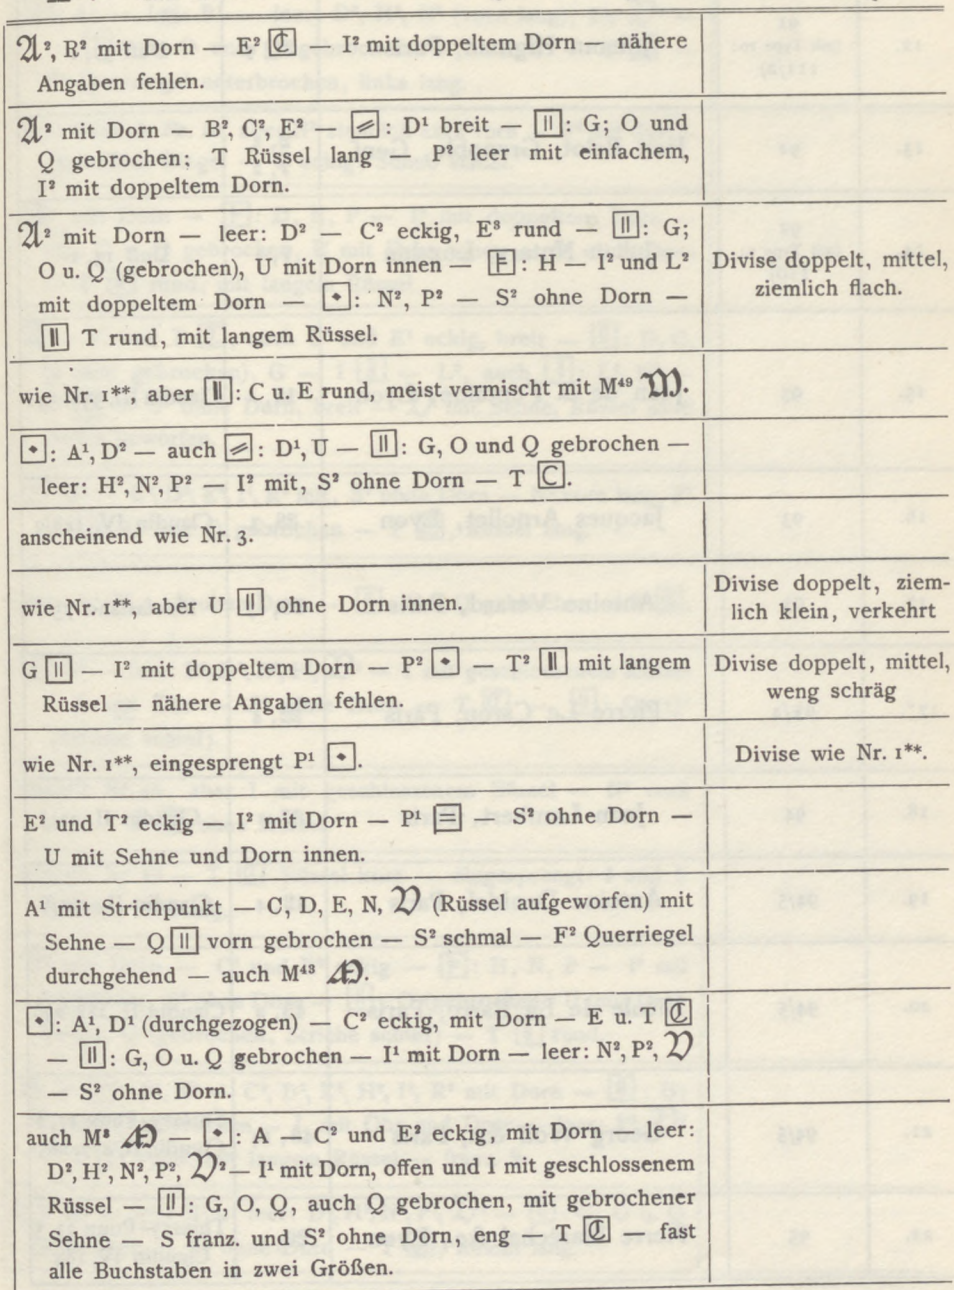 𝔄², R² mit Dorn — E² ℭ — I² mit doppeltem Dorn — nähere
Angaben fehlen.
𝔄² mit Dorn — B², C², E² — : D¹ breit — ||: G; O und
Q gebrochen; T Rüssel lang — P² leer mit einfachem,
I² mit doppeltem Dorn.
𝔄² mit Dorn — leer: D² — C² eckig, E³ rund — ||: G;
O u. Q (gebrochen), U mit Dorn innen — : H — I² und L²
mit doppeltem Dorn — : N², P² — S² ohne Dorn —
|| T rund, mit langem Rüssel.
Divise doppelt, mittel,
ziemlich flach.
wie Nr. 1**, aber ||: C u. E rund, meist vermischt mit M⁴⁹ 𝔐.
: A¹, D² — auch : D¹, U — ||: G, O und Q gebrochen —
leer: H², N², P² — I² mit, S² ohne Dorn — T C.
anscheinend wie Nr. 3.
wie Nr. 1**, aber U || ohne Dorn innen.
Divise doppelt, ziem-
lich klein, verkehrt
G || — I² mit doppeltem Dorn — P² — T² || mit langem
Rüssel — nähere Angaben fehlen.
Divise doppelt, mittel,
weng schräg
wie Nr. 1**, eingesprengt P¹ .
Divise wie Nr. 1**.
E² und T² eckig — I² mit Dorn — P¹ = — S² ohne Dorn —
U mit Sehne und Dorn innen.
A¹ mit Strichpunkt — C, D, E, N, 𝔙 (Rüssel aufgeworfen) mit
Sehne — Q || vorn gebrochen — S² schmal — F² Querriegel
durchgehend — auch M⁴³ .
: A¹, D¹ (durchgezogen) — C² eckig, mit Dorn — E u. T ℭ
— ||: G, O u. Q gebrochen — I¹ mit Dorn — leer: N², P², 𝔙
— S² ohne Dorn.
auch M⁸ — : A — C² und E² eckig, mit Dorn — leer:
D², H², N², P², 𝔙² — I¹ mit Dorn, offen und I mit geschlossenem
Rüssel — ||: G, O, Q, auch Q gebrochen, mit gebrochener
Sehne — S franz. und S² ohne Dorn, eng — T ℭ — fast
alle Buchstaben in zwei Größen.